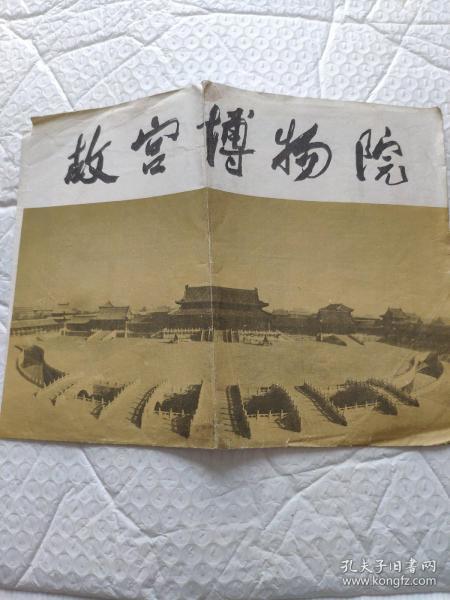 故宫博物院
孔夫子旧书网
www.kongfz.com